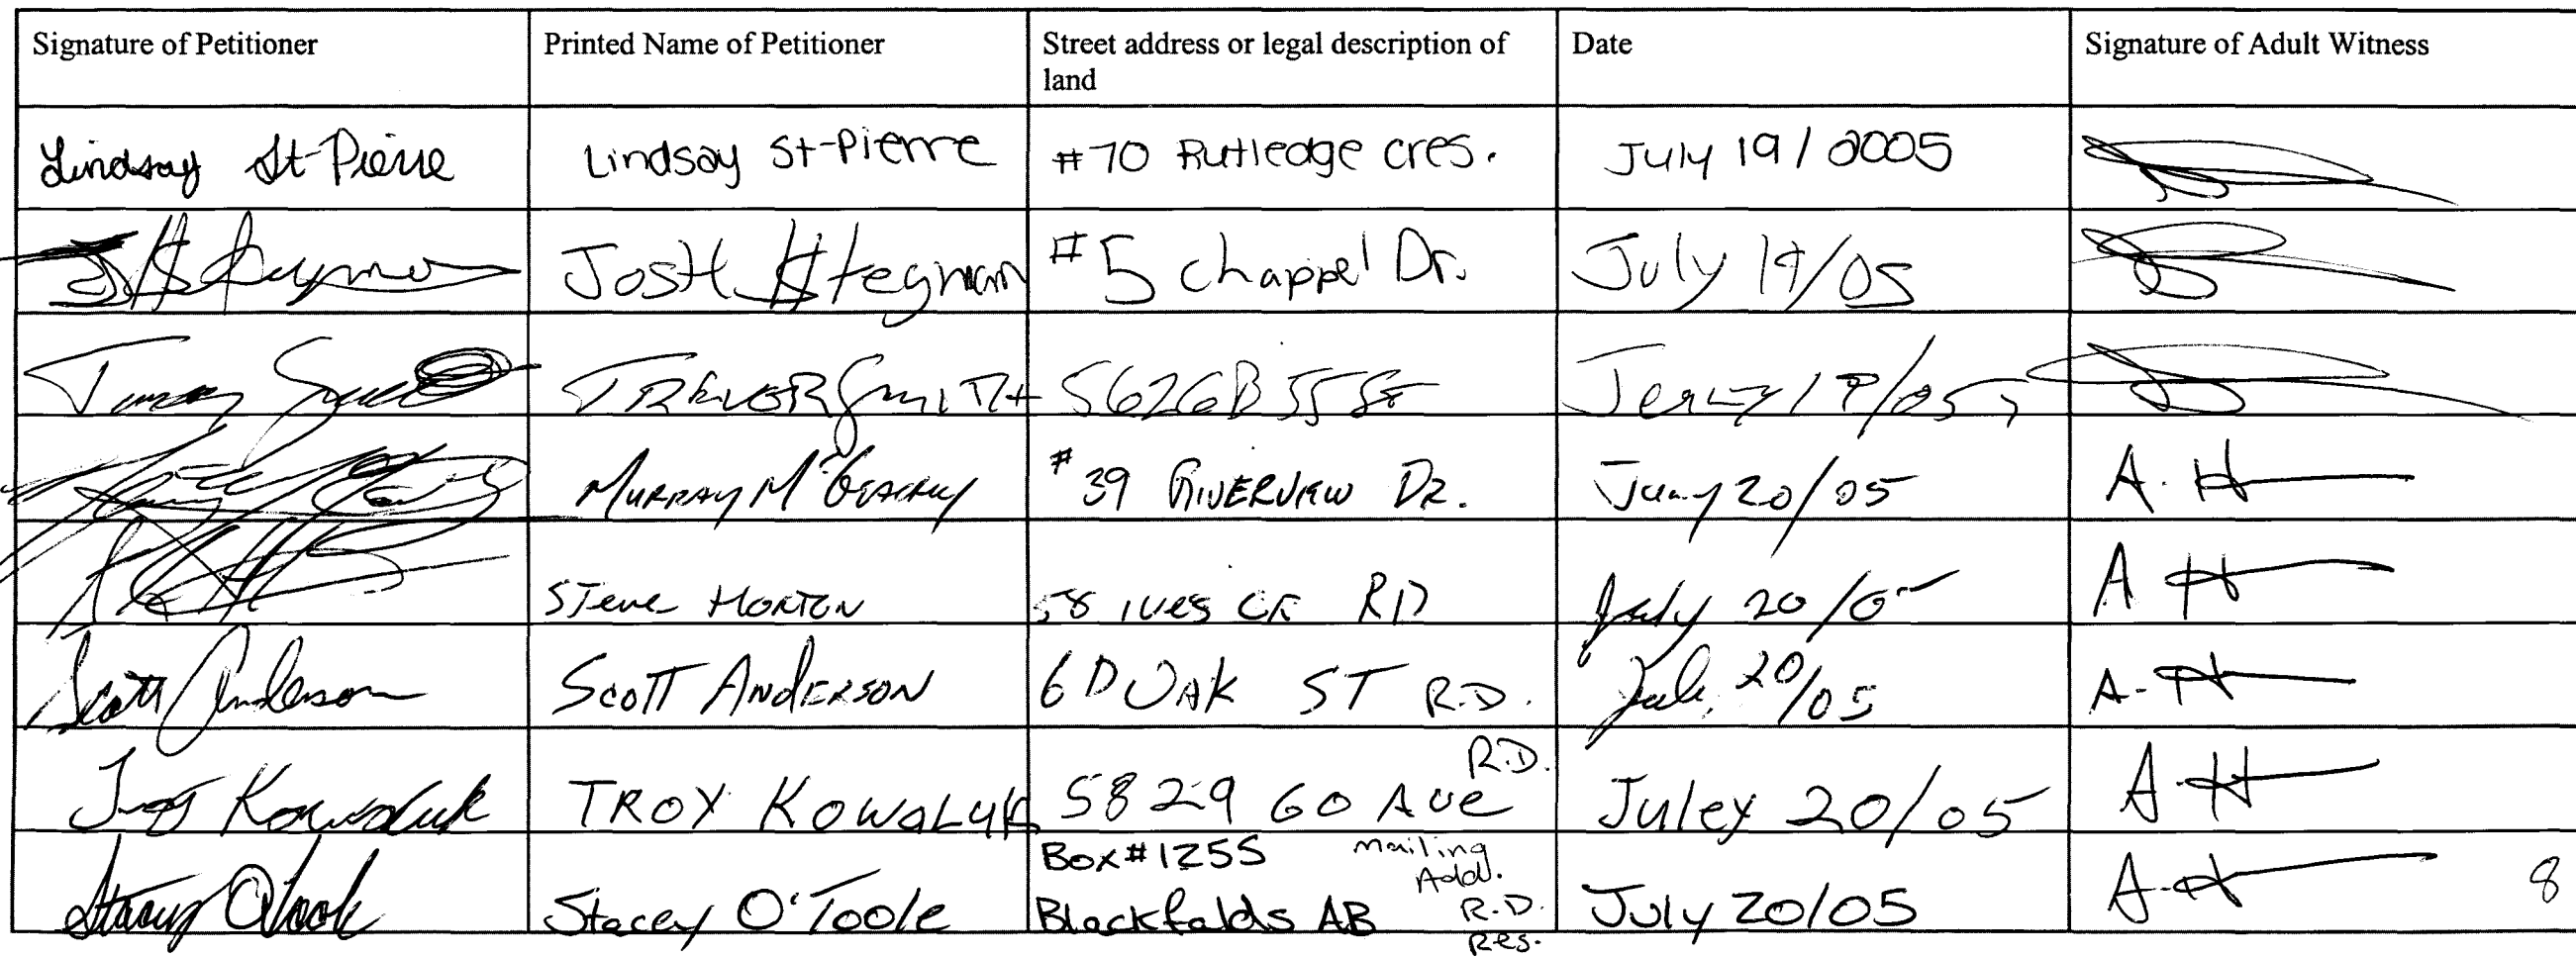 Signature of Petitioner
Printed Name of Petitioner
Street address or legal description of
land
Date
Signature of Adult Witness
Lindsay St-Pierre
Lindsay St-Pierre
#70 Rutledge cres.
July 19/2005
Josh Stegman
#5 Chappel Dr.
July 19/05
TREVOR SMITH
5626B 55 St
19/05
MURRAY
#39 RIVERVIEW DR.
20/05
Steve HORTON
58 Ives CR RD
July 20/05
Scott Anderson
Scott Anderson
6D OAK ST R.D.
July 20/05
A-H
Troy Kowaluk
TROY KOWALUK
5829 60 Ave R.D.
Juley 20/05
A-H
Stacey O'Toole
Stacey O'Toole
Box#1255 mailing
Add.
Blackfalds AB R.D.
Res.
July 20/05
A-H
8